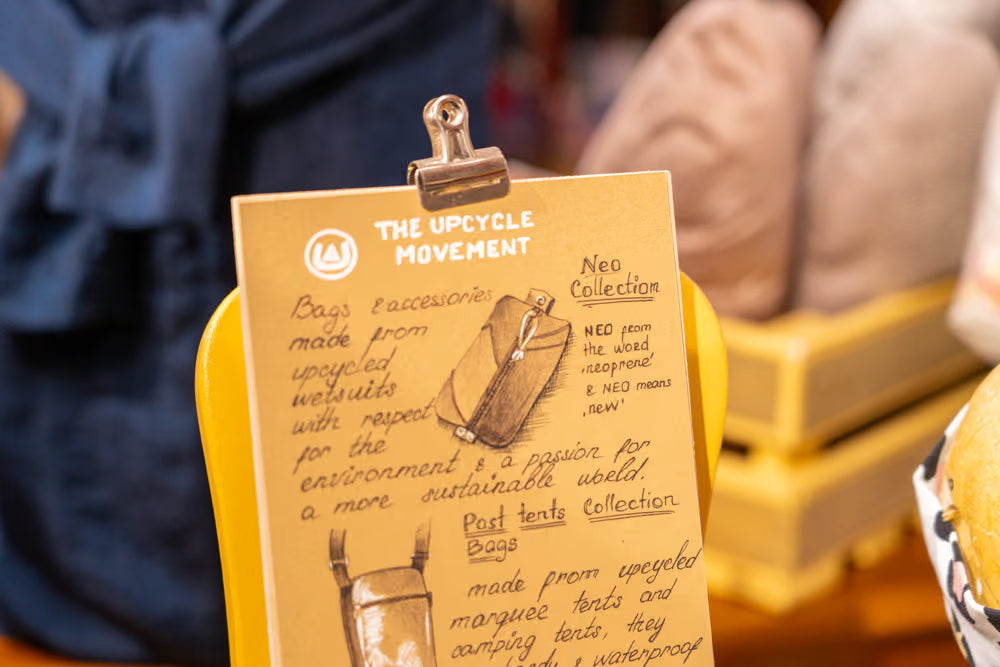 THE UPCYCLE
MOVEMENT
Bags & accessories
made from
upcycled
wetsuits
with respect
for the
environment & a passion for
a more sustainable world.
Neo
Collection
NEO from
the word
‚neoprene'
& NEO means
‚new'
Past tents Collection
Bags
made from upcycled
marquee tents and
camping tents, they
& waterproof